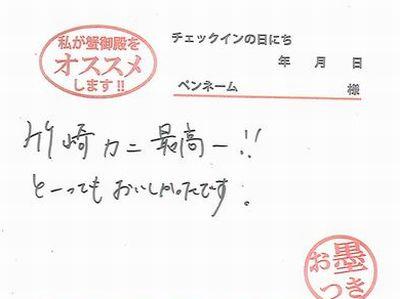 私が蟹御殿を
オススメ
します!!
チェックインの日にち
年 月 日
ペンネーム 様
竹崎カニ最高ー!!
とーってもおいしかったです.
お墨
つき